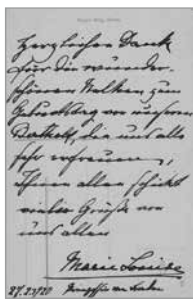 Herzlichen Dank
für die wunder-
schönen Nelken zum
Geburtstag von unserem
die uns alle
sehr erfreuen,
Ihnen allen schickt
viele Grüße von
uns allen
Marie Louise